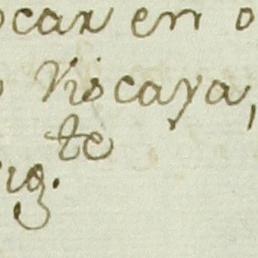 ocar en o
Viscaya,
te
rig.